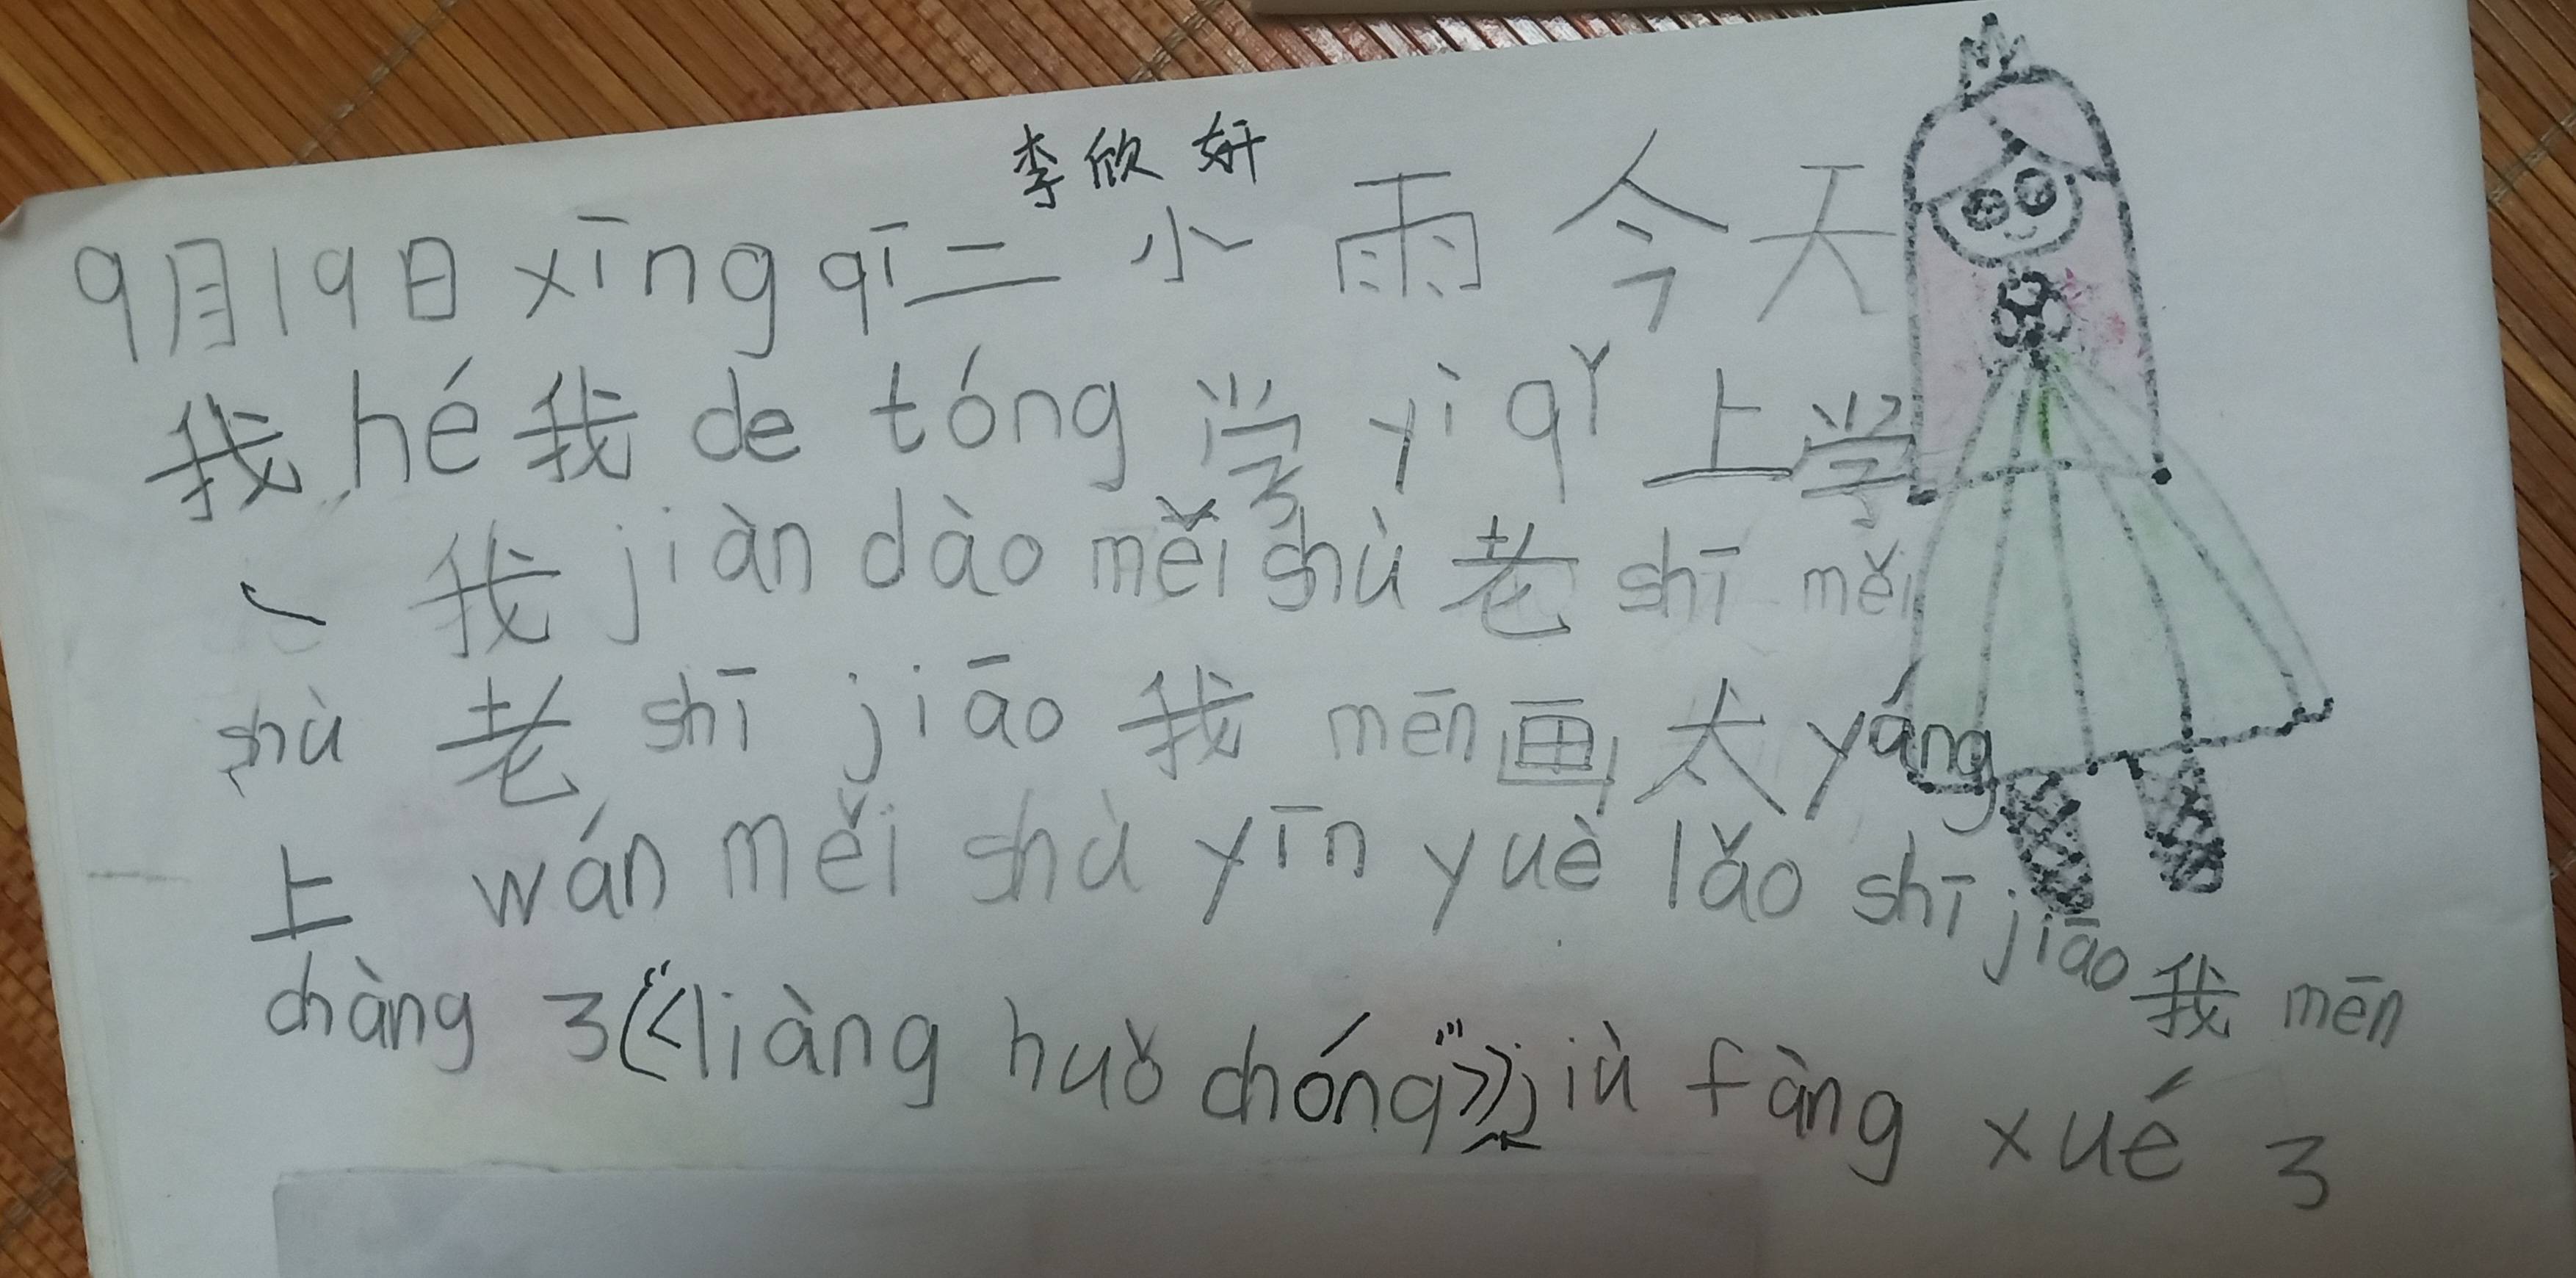 李欣妍
9月19日 xīng qī 二 小雨 今天
我 hé 我 de tóng 学 yì qǐ 上学
、 我 jiàn dào měi shù 老 shī měi
shù 老 shī jiāo 我 mēn 画 太 yáng
上 wán měi shù yīn yuè lǎo shī jiāo 我 mēn
chàng 3《“liàng huǒ chóng”》jiù fàng xué 3